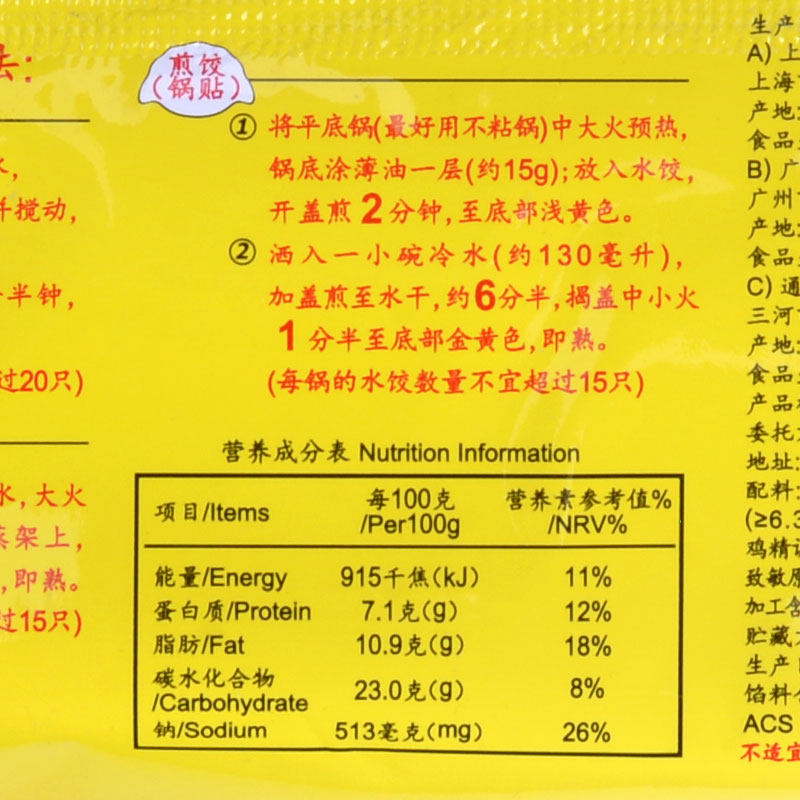 法:
水,
并搅动,
分半钟,
过20只)
水,大火
蒸架上,
,即熟。
过15只)
煎饺
(锅贴)
① 将平底锅(最好用不粘锅)中大火预热,
锅底涂薄油一层(约15g);放入水饺,
开盖煎2分钟,至底部浅黄色。
② 洒入一小碗冷水(约130毫升),
加盖煎至水干,约6分半,揭盖中小火
1分半至底部金黄色,即熟。
(每锅的水饺数量不宜超过15只)
营养成分表 Nutrition Information
项目/Items 每100克/Per100g 营养素参考值%/NRV%
能量/Energy 915千焦(kJ) 11%
蛋白质/Protein 7.1克(g) 12%
脂肪/Fat 10.9克(g) 18%
碳水化合物/Carbohydrate 23.0克(g) 8%
钠/Sodium 513毫克(mg) 26%
生产
A) 上
上海
产地:
食品
B) 广
广州
产地:
食品
C) 通
三河
产地:
食品
产品
委托
地址:
配料:
(≥6.3
鸡精调
致敏原
加工含
贮藏
生产
馅料
ACS
不适宜